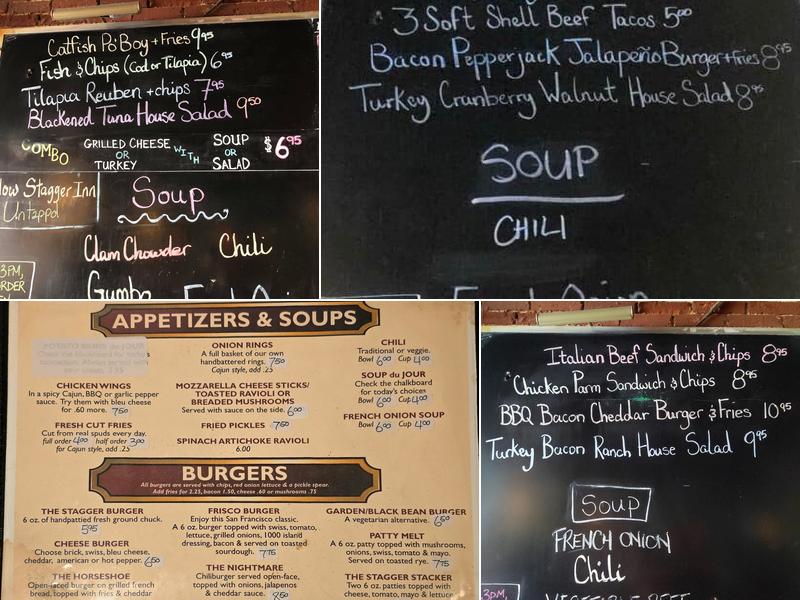 Catfish Po'Boy + Fries 9.95
Fish & Chips (Cod or Tilapia) 6.95
Tilapia Reuben + chips 7.95
Blackened Tuna House Salad 9.50
COMBO GRILLED CHEESE OR TURKEY WITH SOUP OR SALAD $6.95
low Stagger Inn
Untappd
Soup
Clam Chowder Chili
Gumbo
3PM,
ORDER
3 Soft Shell Beef Tacos 5.00
Bacon Pepperjack Jalapeño Burger + fries 8.95
Turkey Cranberry Walnut House Salad 8.95
SOUP
CHILI
APPETIZERS & SOUPS
POTATO SKINS du JOUR
CHICKEN WINGS
In a spicy Cajun, BBQ or garlic pepper
sauce. Try them with bleu cheese
for .60 more. 7.50
FRESH CUT FRIES
Cut from real spuds every day.
full order 4.00 half order 3.00
for Cajun style, add .25
ONION RINGS
A full basket of our own
handbattered rings. 7.50
Cajun style, add .25
MOZZARELLA CHEESE STICKS/
TOASTED RAVIOLI OR
BREADED MUSHROOMS
Served with sauce on the side. 6.00
FRIED PICKLES 7.50
SPINACH ARTICHOKE RAVIOLI
6.00
CHILI
Traditional or veggie.
Bowl 6.00 Cup 4.00
SOUP du JOUR
Check the chalkboard
for today's choices
Bowl 6.00 Cup 4.00
FRENCH ONION SOUP
Bowl 6.00 Cup 4.00
BURGERS
All burgers are served with chips, red onion lettuce & a pickle spear.
Add fries for 2.25, bacon 1.50, cheese .60 or mushrooms .75
THE STAGGER BURGER
6 oz. of handpattied fresh ground chuck.
5.95
CHEESE BURGER
Choose brick, swiss, bleu cheese,
cheddar, american or hot pepper. 6.50
THE HORSESHOE
Open-faced burger on grilled french
bread, topped with fries & cheddar
FRISCO BURGER
Enjoy this San Francisco classic.
A 6 oz. burger topped with swiss, tomato,
lettuce, grilled onions, 1000 island
dressing, bacon & served on toasted
sourdough. 7.75
THE NIGHTMARE
Chiliburger served open-face,
topped with onions, jalapenos
& cheddar sauce. 7.50
GARDEN/BLACK BEAN BURGER
A vegetarian alternative. 6.50
PATTY MELT
A 6 oz. patty topped with mushrooms,
onions, swiss, tomato & mayo.
Served on toasted rye. 7.75
THE STAGGER STACKER
Two 6 oz. patties topped with
cheese, tomato, mayo & lettuce
Italian Beef Sandwich & Chips 8.95
Chicken Parm Sandwich & Chips 8.95
BBQ Bacon Cheddar Burger & Fries 10.95
Turkey Bacon Ranch House Salad 9.95
Soup
FRENCH ONION
Chili
VEGETABLE BEEF
3PM,